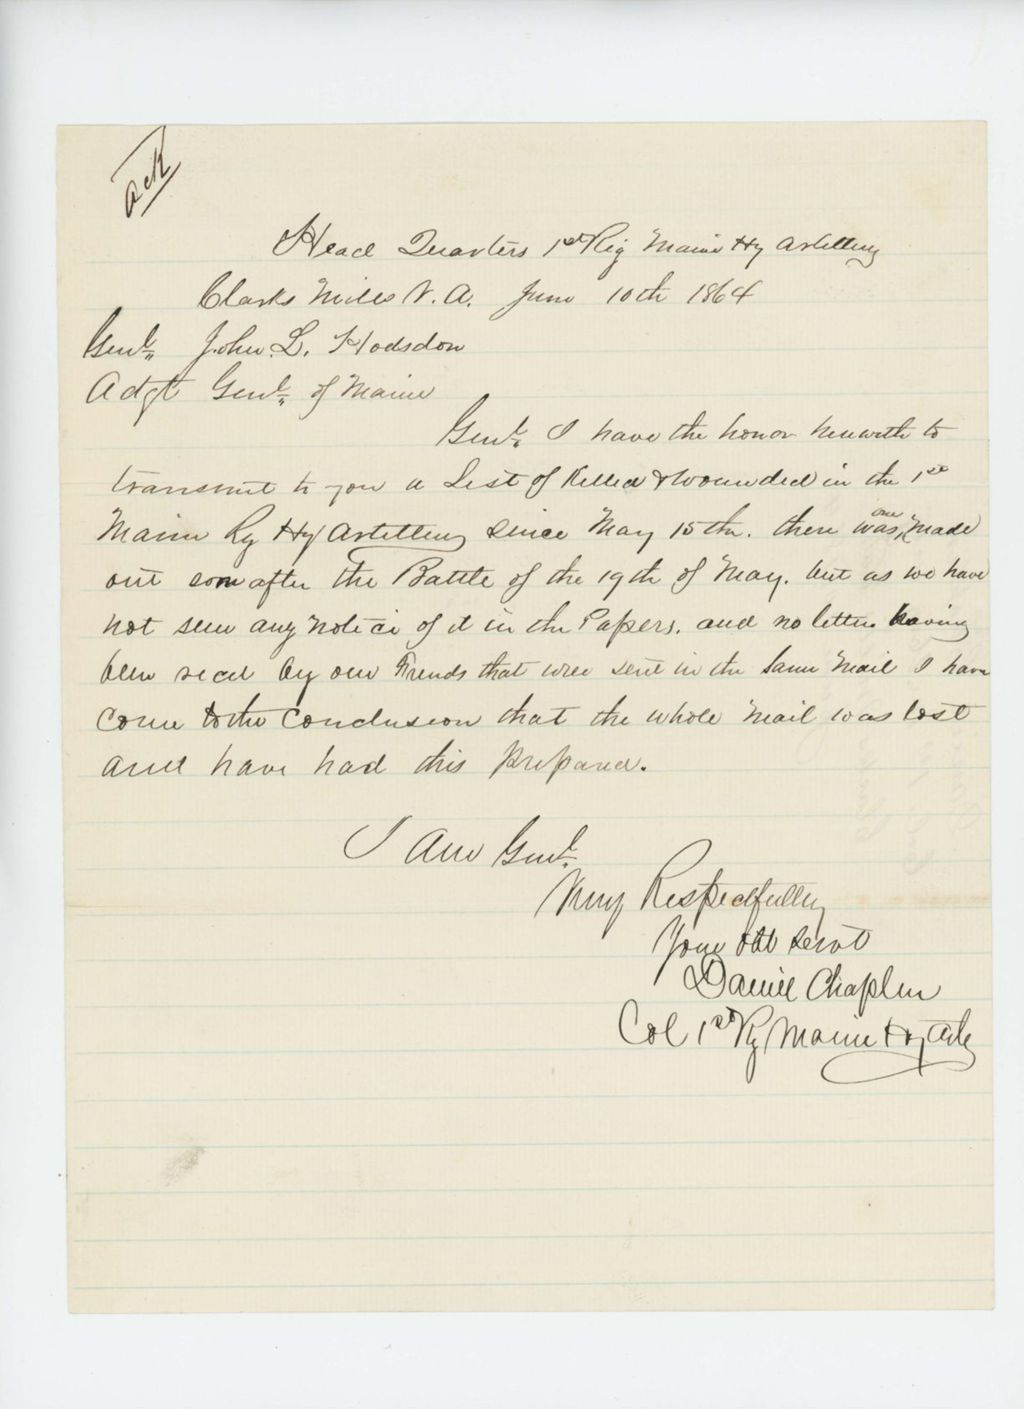 Ack
Head Quarters 1st Reg Maine Hy Artillery
Clarks Mills V.A. June 10th 1864
Genl, John. L. Hodsdon
Adgt Genl, of Maine
Genl, I have the honor herewith to
transmit to you a List of Killed & wounded in the 1st
Maine Rg Hy Artillery since May 15th. there was one made
out soon after the Battle of the 19th of May. but as we have
not seen any notice of it in the Papers. and no letters having
been recd by our Friends that were sent in the same Mail I have
come to the conclusion that the whole Mail was lost
and have had this prepared.
I Am Genl.
Very Respectfully
Your obt servt
Daniel Chaplin
Col 1st Rg Maine Hy Arty